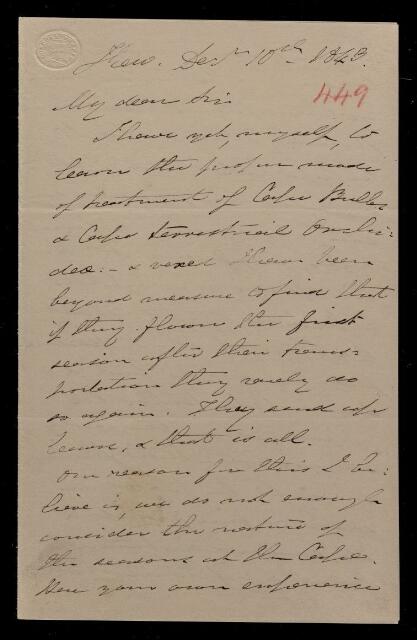 Kew. Decr 10th 1843.
449
My dear Sir
I have yet, myself, to
learn the proper mode
of treatment of Cape Bulbs
& Cape terrestrial Orchi-
deae:- & vexed I have been
beyond measure to find that
if they flower the first
season after their trans-
portation they rarely do
so again. They send up
leaves, & that is all.
One reason for this I be-
lieve is, we do not enough
consider the nature of
the seasons at the Cape.
Here your own experience